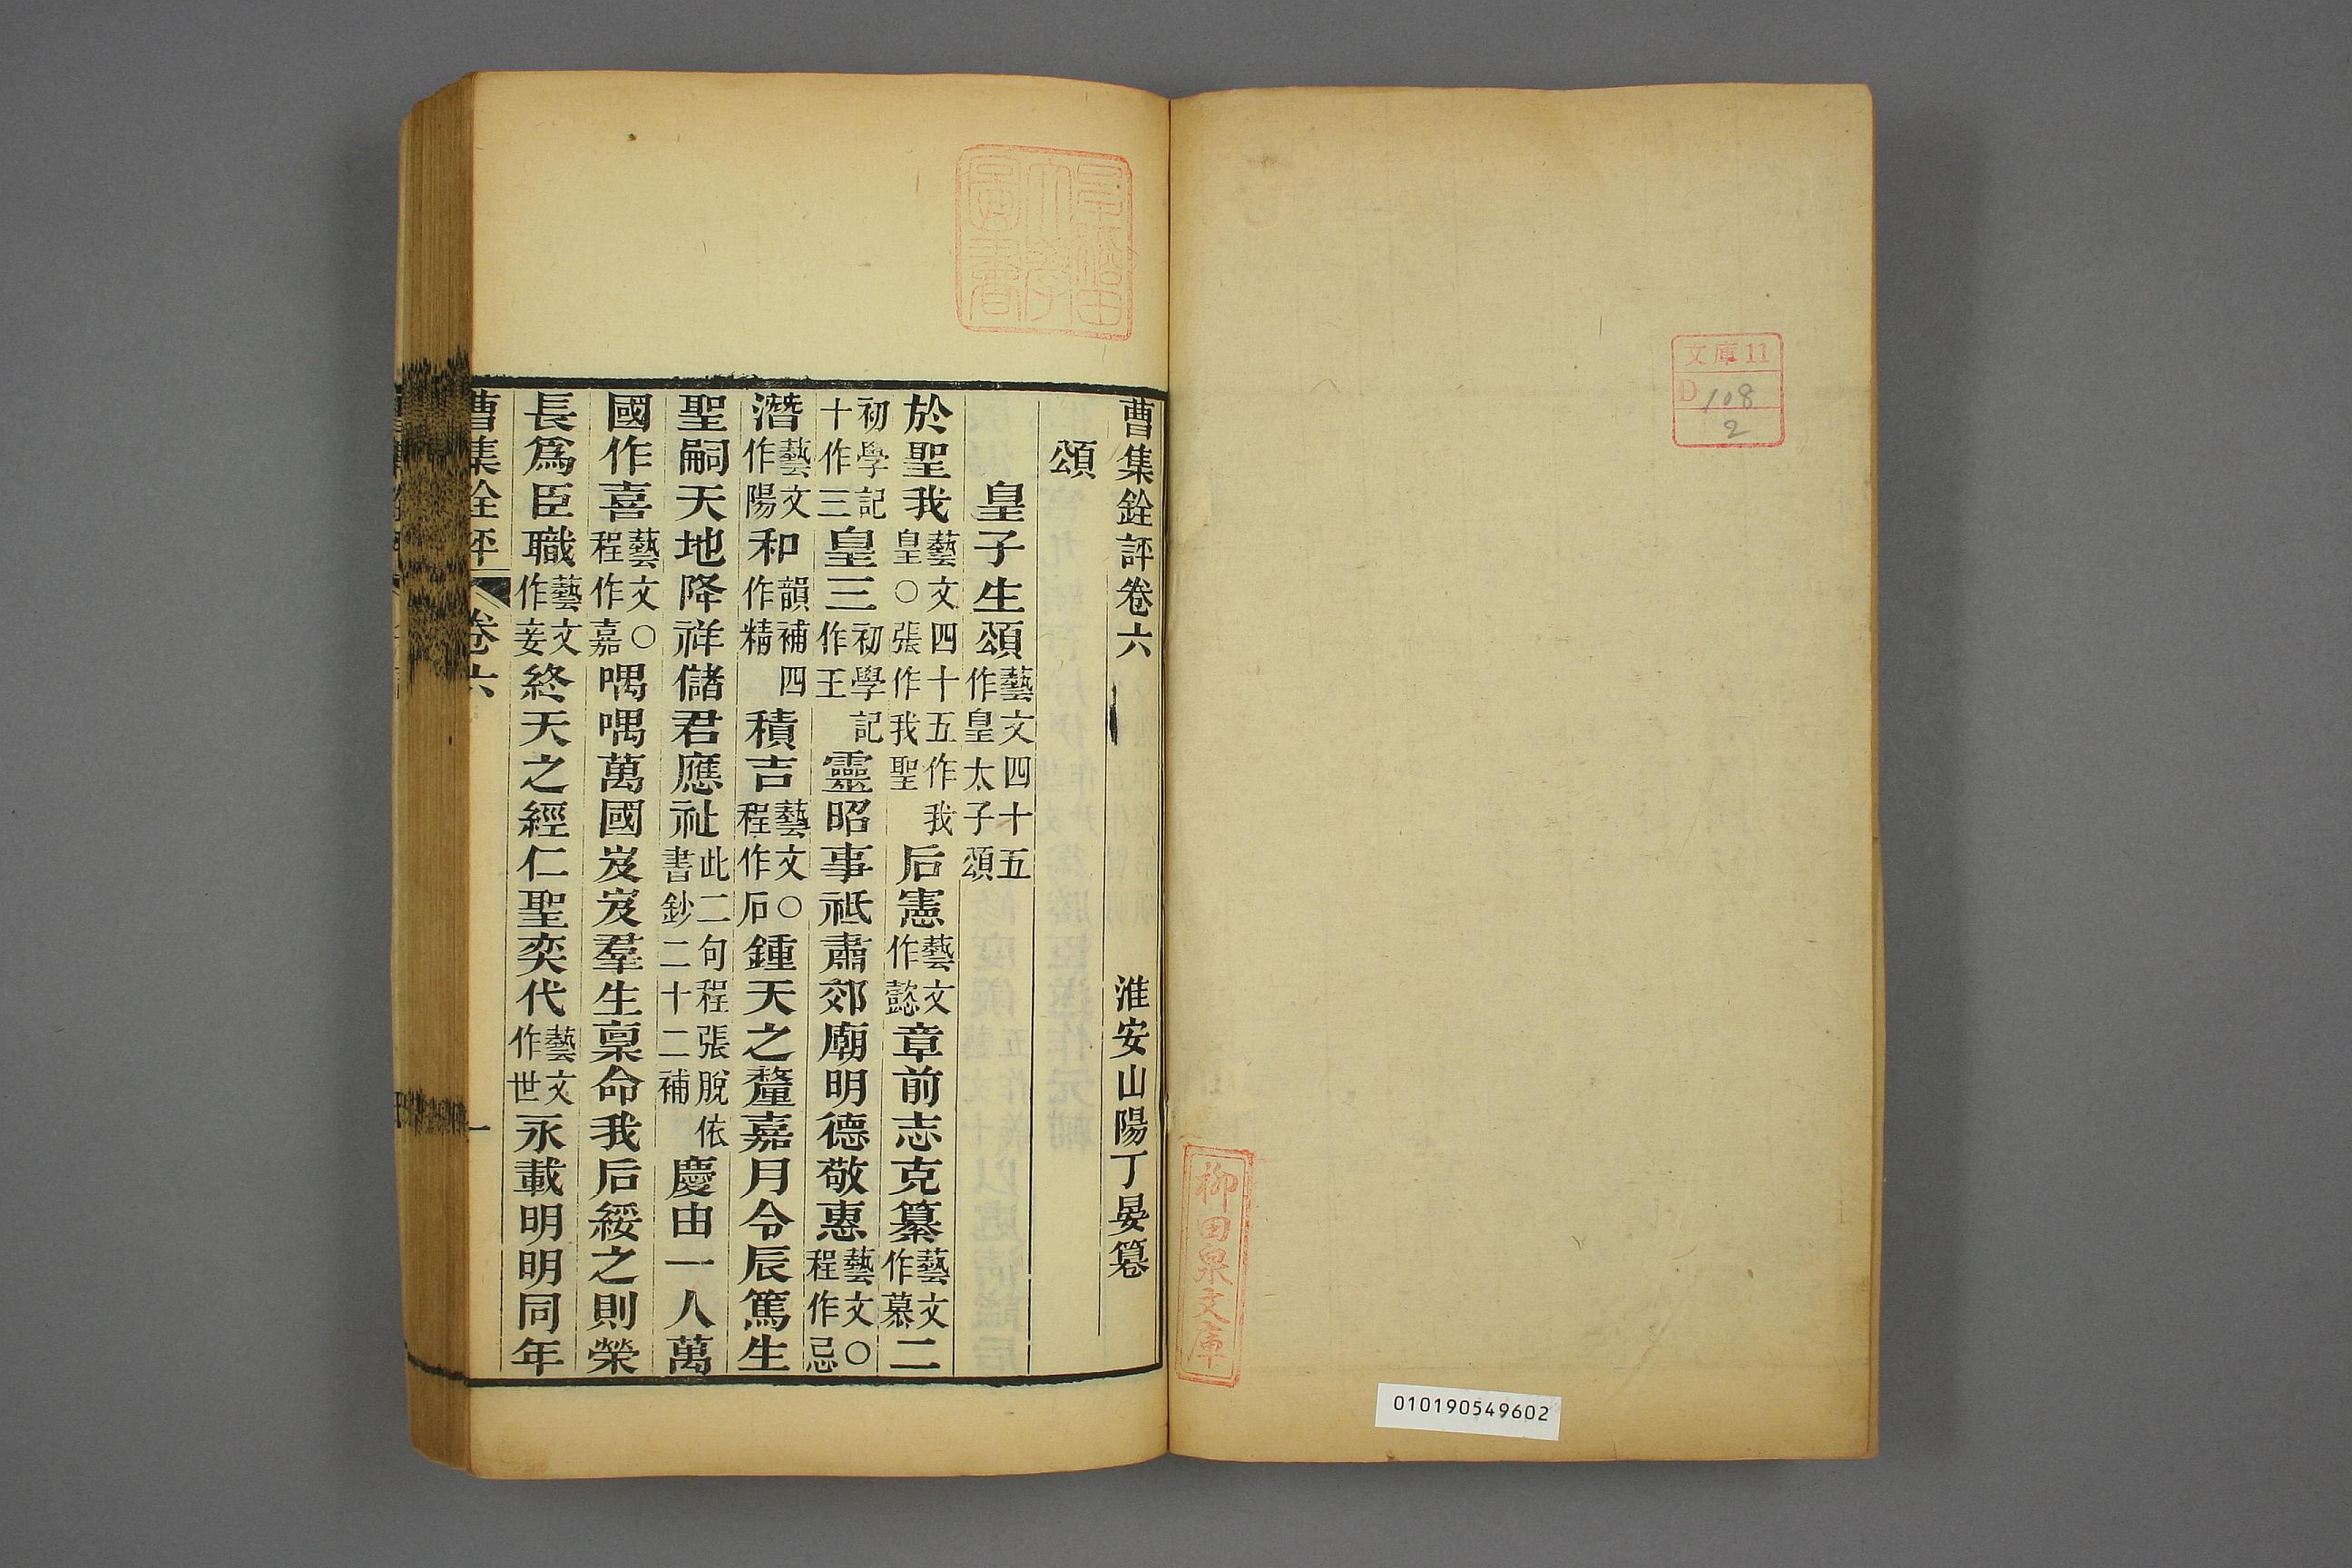 文庫11
D 108
2
柳田泉文庫
010190549602
早稲田大学圖書
曹集銓評卷六
淮安山陽丁晏篹
頌
皇子生頌藝文四十五作皇太子頌
於聖我藝文四十五作我皇○張作我聖后憲藝文作懿章前志克纂藝文作慕二
初學記十作三皇三初學記作王靈昭事祗肅郊廟明德敬惠藝文○程作忌
潛藝文作陽和韻補四作精積吉藝文○程作后鍾天之釐嘉月令辰篤生
聖嗣天地降祥儲君應祉此二句程張脫依書鈔二十二補慶由一人萬
國作喜藝文○程作嘉喁喁萬國岌岌羣生稟命我后綏之則榮
長爲臣職藝文作妾終天之經仁聖奕代藝文作世永載明明同年
曹集銓評
卷六
一